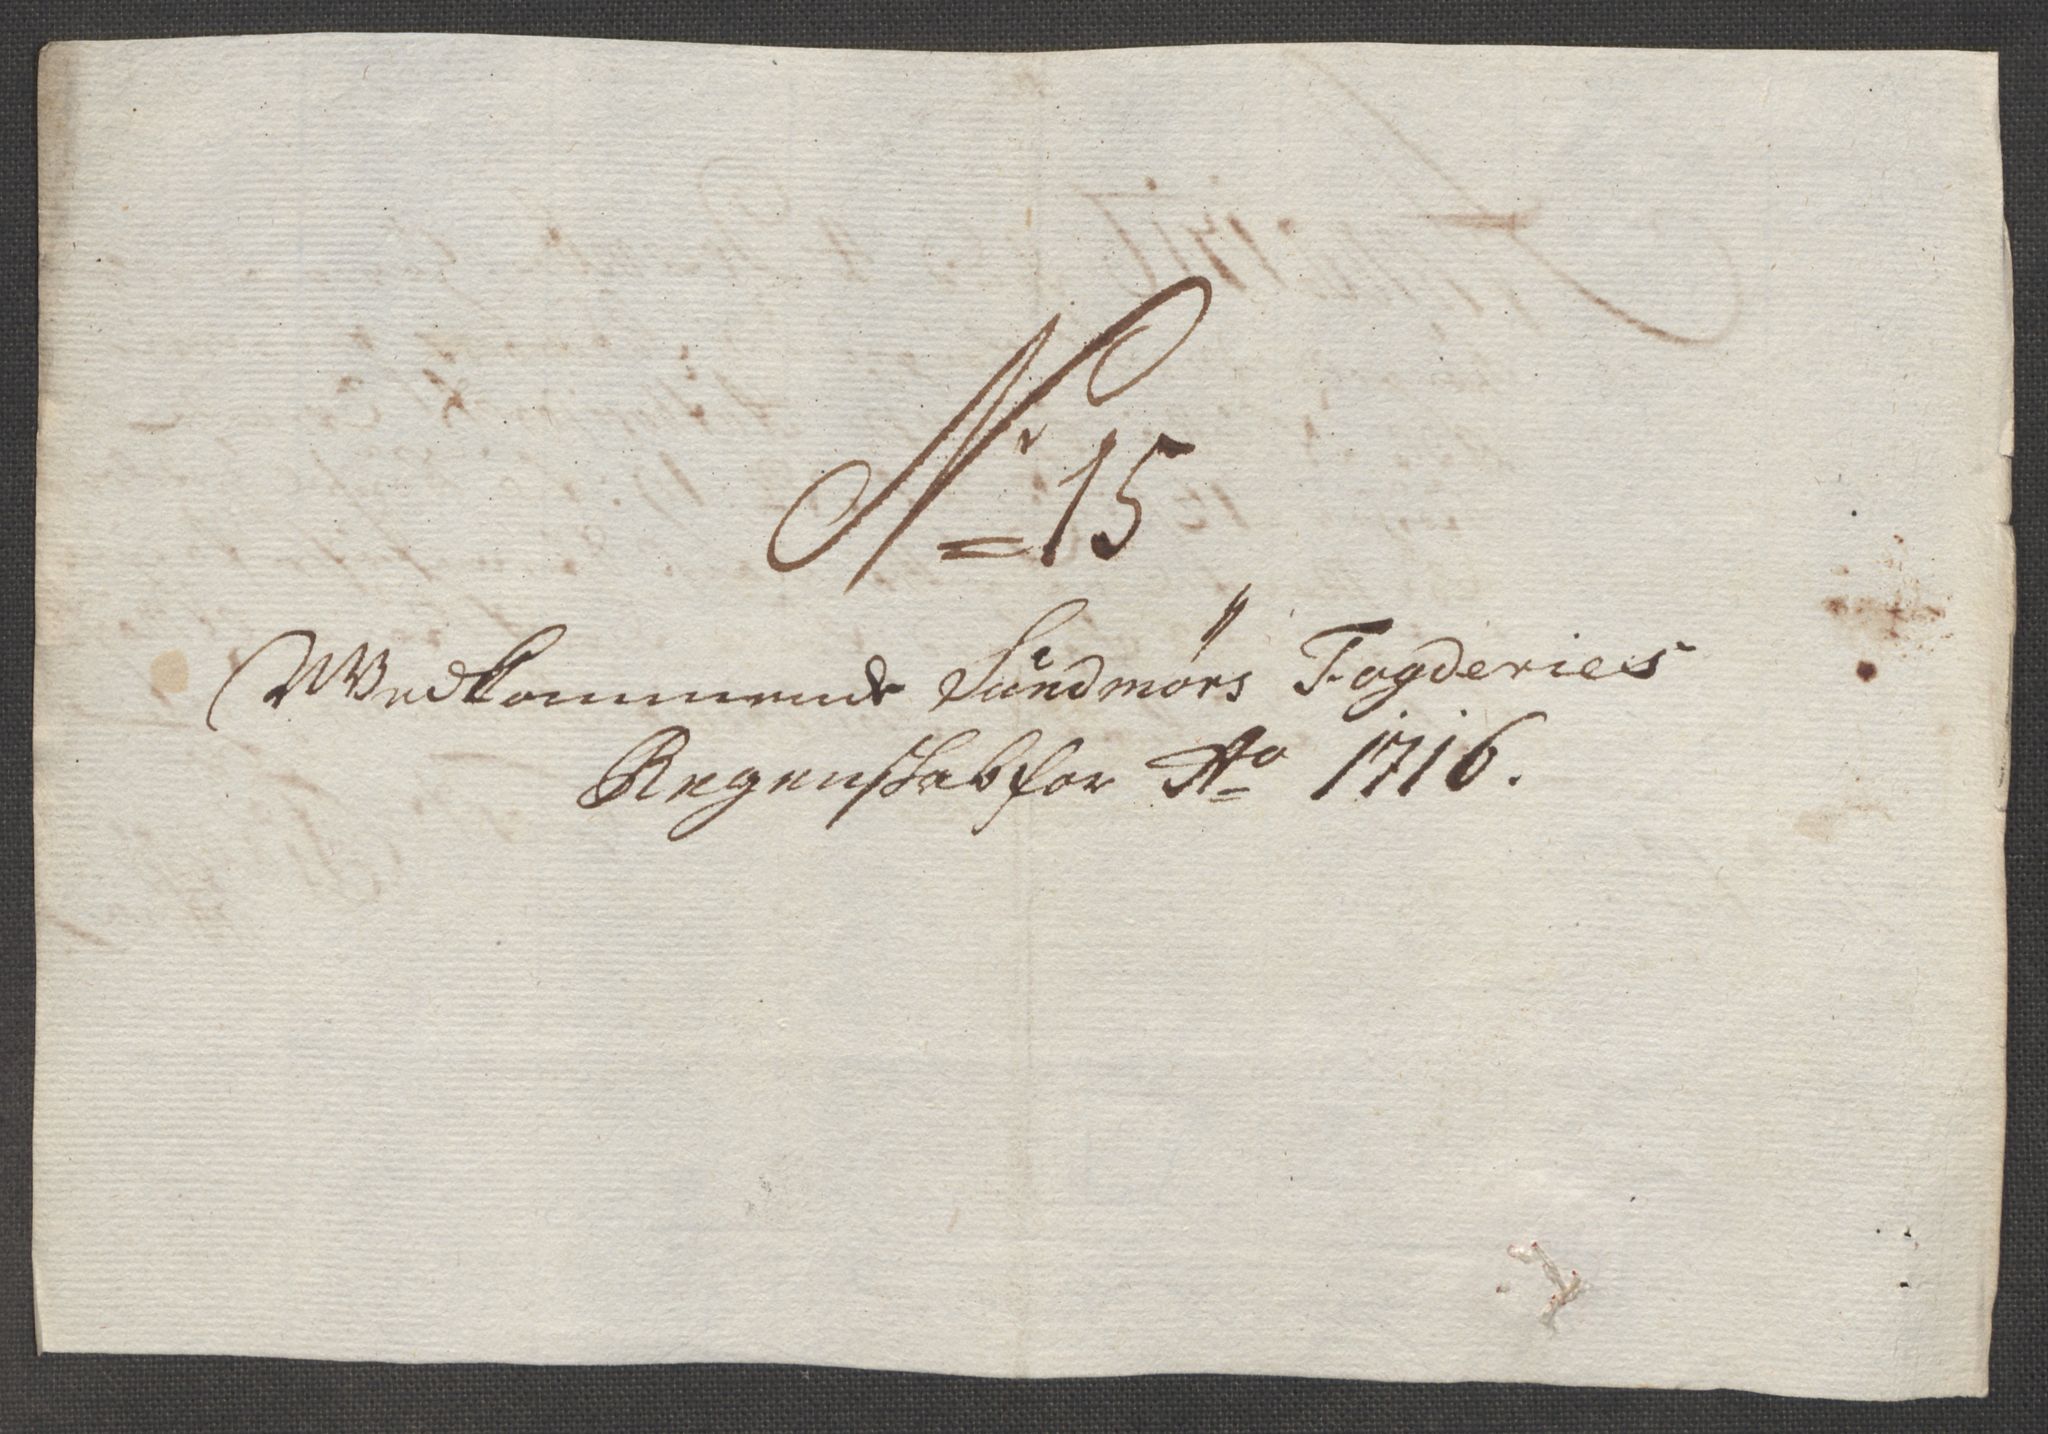 Nr 15
Wedkommende Sundmørs Fogderies
Regenskab for Ao 1716.